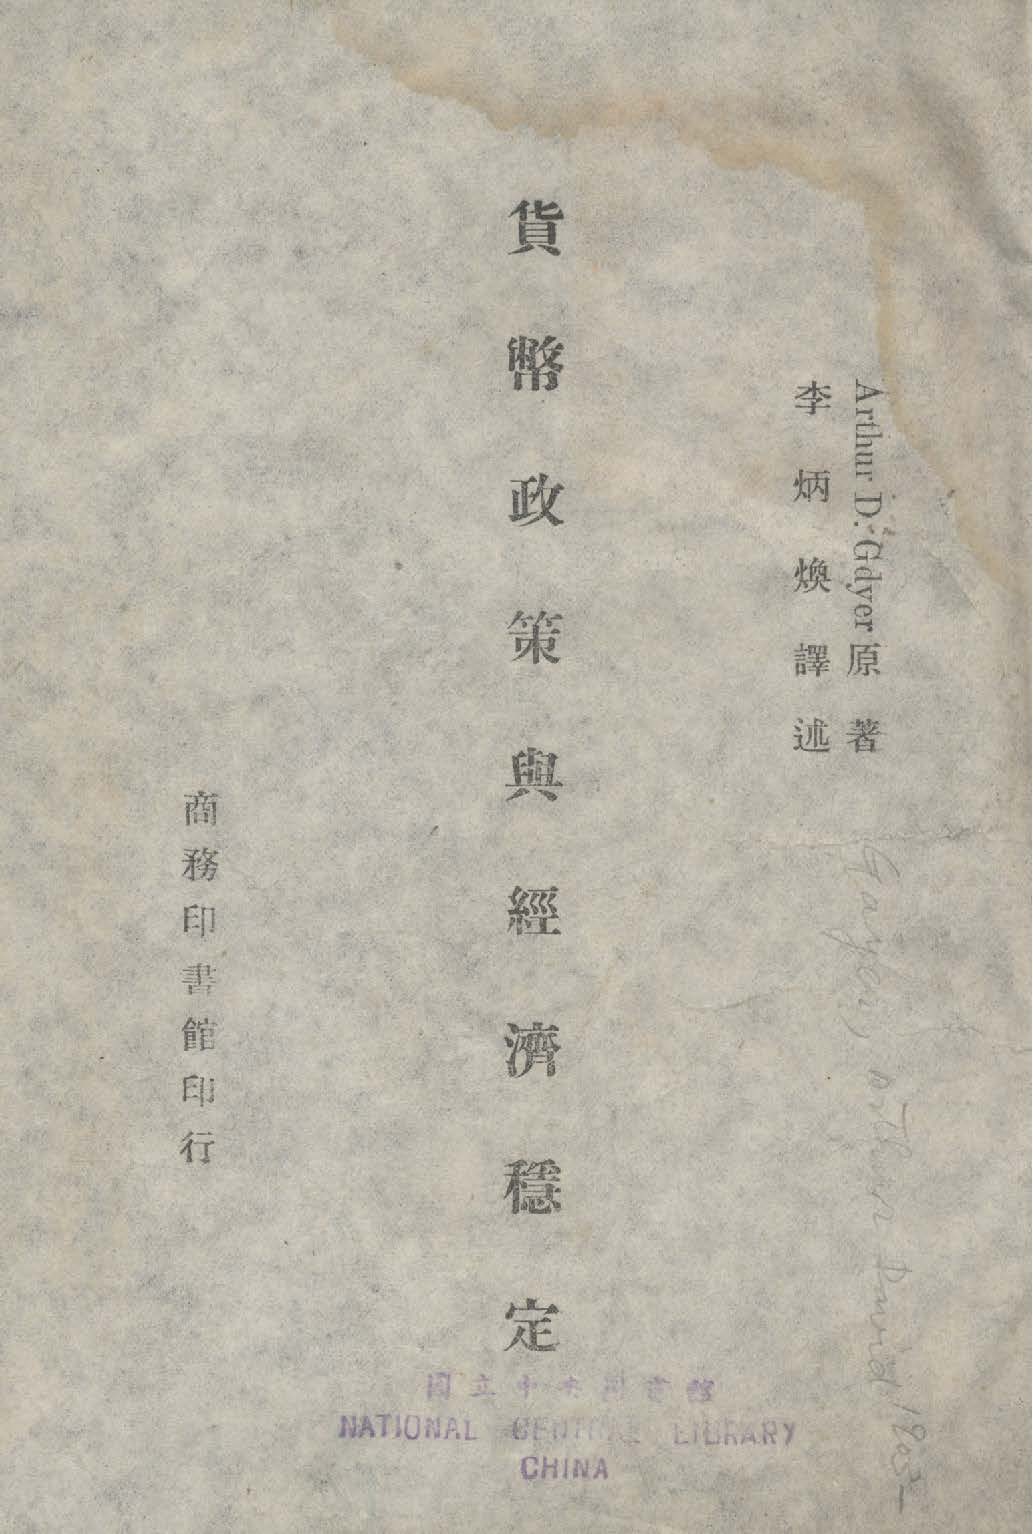 Arthur D. Gdyer原著
李炳煥譯述
貨幣政策與經濟穩定
商務印書館印行
國立中央圖書館
NATIONAL CENTRAL LIBRARY
CHINA
Gayer, Arthur David, 1903-